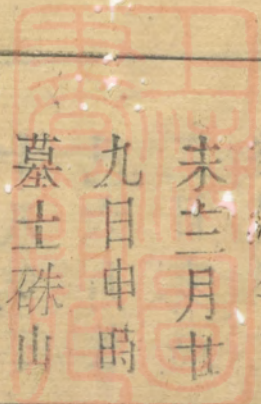 未三月廿
九日申時
墓土硃山